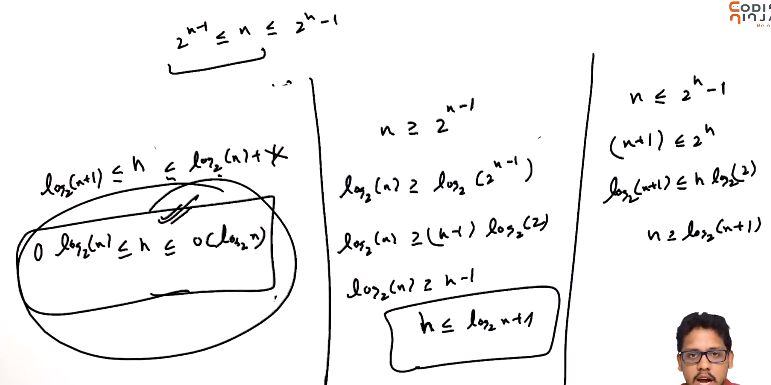 CODING NINJA
2^(h-1) ≤ n ≤ 2^h - 1
log₂(n+1) ≤ h ≤ log₂(n) + 1
O log₂(n) ≤ h ≤ O(log₂n)
n ≥ 2^(h-1)
log₂(n) ≥ log₂(2^(h-1))
log₂(n) ≥ (h-1) log₂(2)
log₂(n) ≥ h-1
h ≤ log₂n+1
n ≤ 2^h - 1
(n+1) ≤ 2^h
log₂(n+1) ≤ h log₂(2)
h ≥ log₂(n+1)